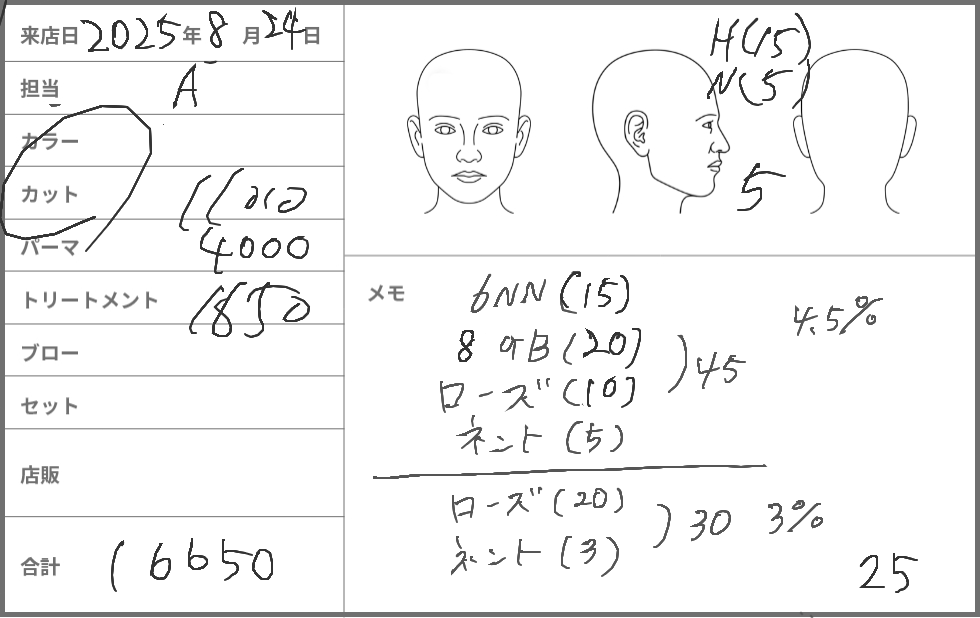 来店日 2025年 8月24日
担当 A
カラー
カット 11000
パーマ 4000
トリートメント 1850
ブロー
セット
店販
合計 16650
H(15)
N(5)
5
メモ
6NN (15)
8 (20) )45 4.5%
ローズ (10)
ネント (5)
ローズ (20) )30 3%
ネント (3)
25